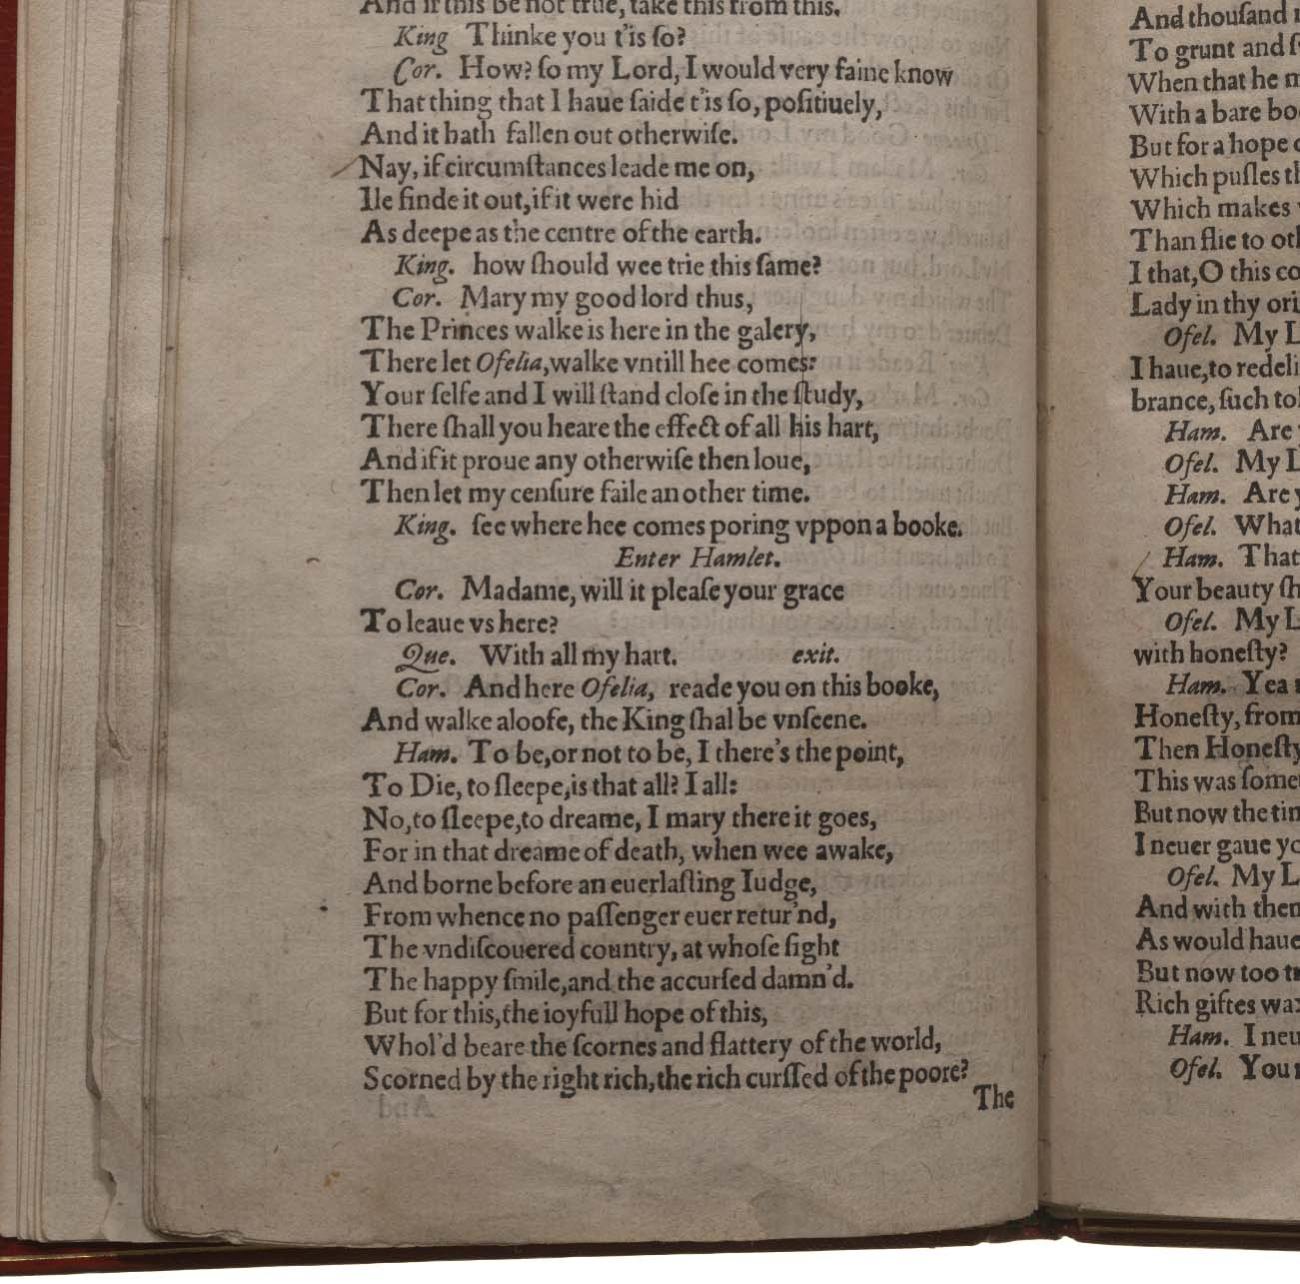 And if this be not true, take this from this.
King Thinke you t'is ſo?
Cor. How? ſo my Lord, I would very faine know
That thing that I haue ſaide t'is ſo, poſitiuely,
And it hath fallen out otherwiſe.
Nay, if circumſtances leade me on,
Ile finde it out, if it were hid
As deepe as the centre of the earth.
King. how ſhould wee trie this ſame?
Cor. Mary my good lord thus,
The Princes walke is here in the galery,
There let Ofelia, walke vntill hee comes:
Your ſelfe and I will ſtand cloſe in the ſtudy,
There ſhall you heare the effect of all his hart,
And if it proue any otherwiſe then loue,
Then let my cenſure faile an other time.
King. ſee where hee comes poring vppon a booke.
Enter Hamlet.
Cor. Madame, will it pleaſe your grace
To leaue vs here?
Que. With all my hart. exit.
Cor. And here Ofelia, reade you on this booke,
And walke aloofe, the King ſhal be vnſeene.
Ham. To be, or not to be, I there's the point,
To Die, to ſleepe, is that all? I all:
No, to ſleepe, to dreame, I mary there it goes,
For in that dreame of death, when wee awake,
And borne before an euerlaſting Iudge,
From whence no paſſenger euer retur'nd,
The vndiſcouered country, at whoſe ſight
The happy ſmile, and the accurſed damn'd.
But for this, the ioyfull hope of this,
Whol'd beare the ſcornes and flattery of the world,
Scorned by the right rich, the rich curſſed of the poore?
The
And thouſand
To grunt and
When that he
With a bare
But for a hope
Which puſles
Which makes
Than flie to
I that, O this
Lady in thy
Ofel. My
I haue, to
brance, ſuch
Ham. Are
Ofel. My
Ham. Are
Ofel. What
Ham. That
Your beauty
Ofel. My
with honeſty?
Ham. Yea
Honeſty, from
Then Honeſty
This was
But now the
I neuer gaue
Ofel. My
And with
As would haue
But now too
Rich giftes
Ham. I
Ofel.